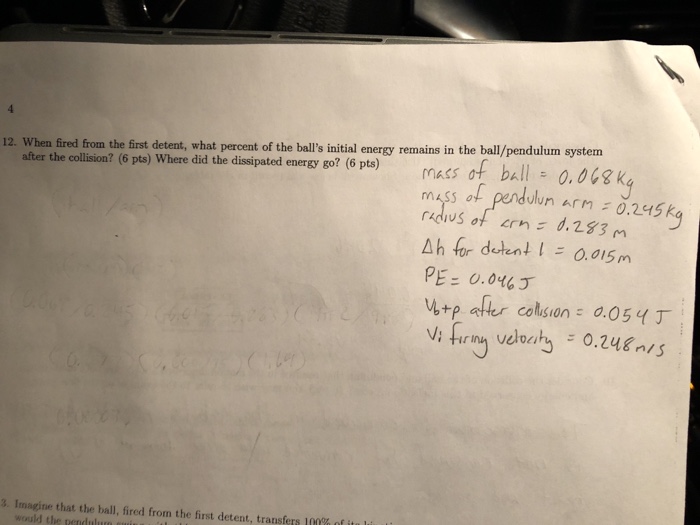 4
12. When fired from the first detent, what percent of the ball's initial energy remains in the ball/pendulum system
after the collision? (6 pts) Where did the dissipated energy go? (6 pts)
mass of ball = 0.068 Kg
mass of pendulum arm = 0.245 Kg
radius of arm = 0.283 m
Δh for detent 1 = 0.015 m
PE = 0.046 J
Vb+p after collision = 0.054 J
Vi firing velocity = 0.248 m/s
3. Imagine that the ball, fired from the first detent, transfers 100% of its
would the pendulum